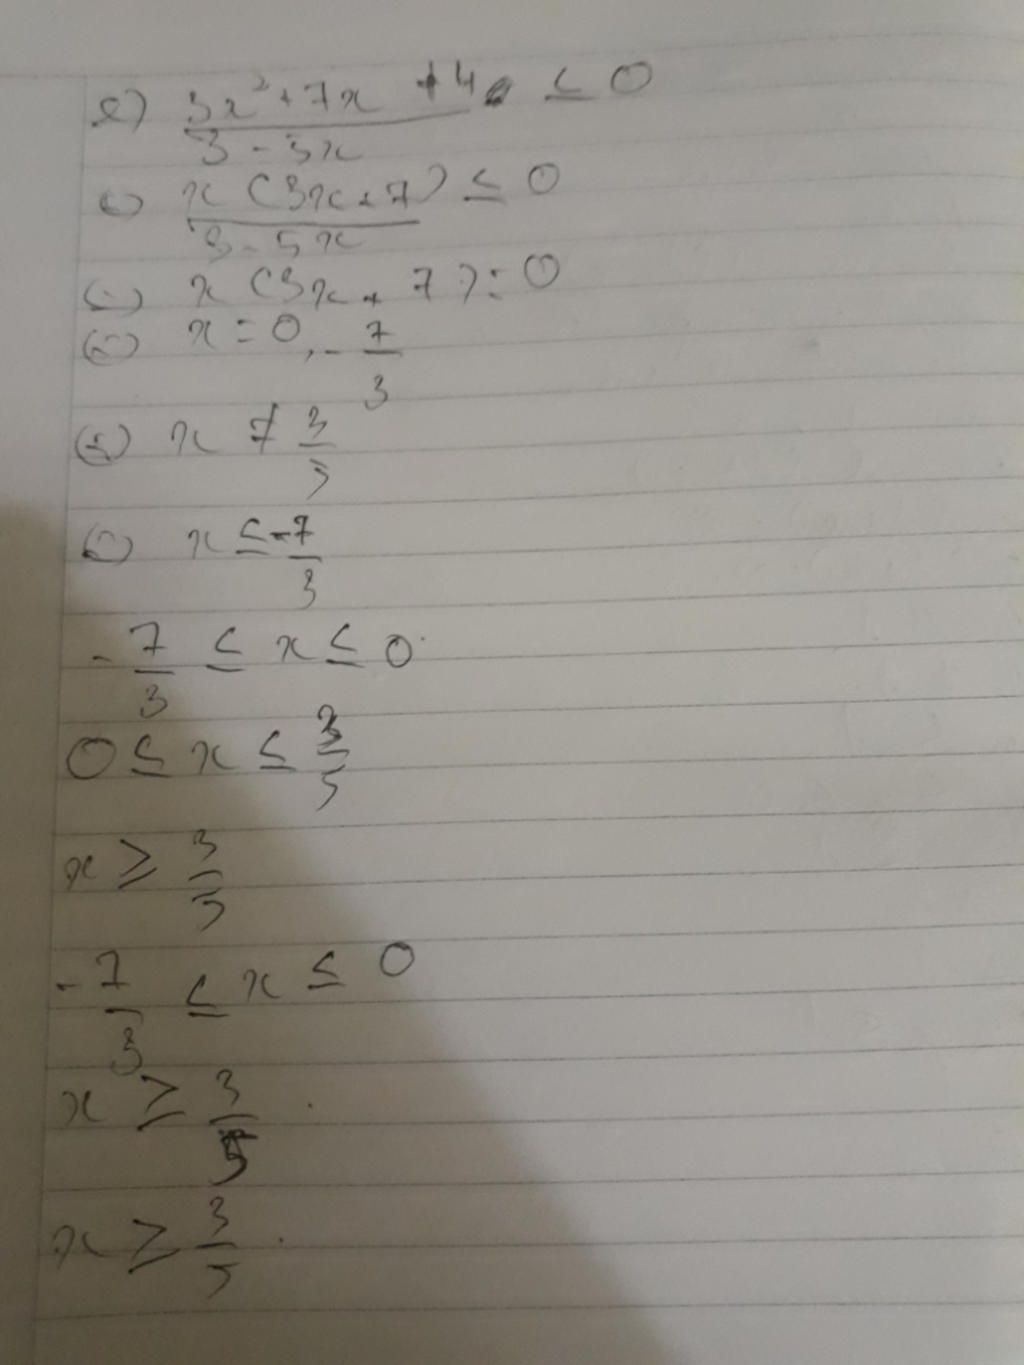 e) 3x² + 7x + 4 ≤ 0
3 - 5x
x (3x + 7) ≤ 0
3 - 5x
x (3x + 7) = 0
x = 0, - 7
3
x ≠ 3
5
x ≤ - 7
3
- 7 ≤ x ≤ 0
3
0 ≤ x ≤ 3
5
x ≥ 3
5
- 7 ≤ x ≤ 0
3
x ≥ 3
5
x ≥ 3
5